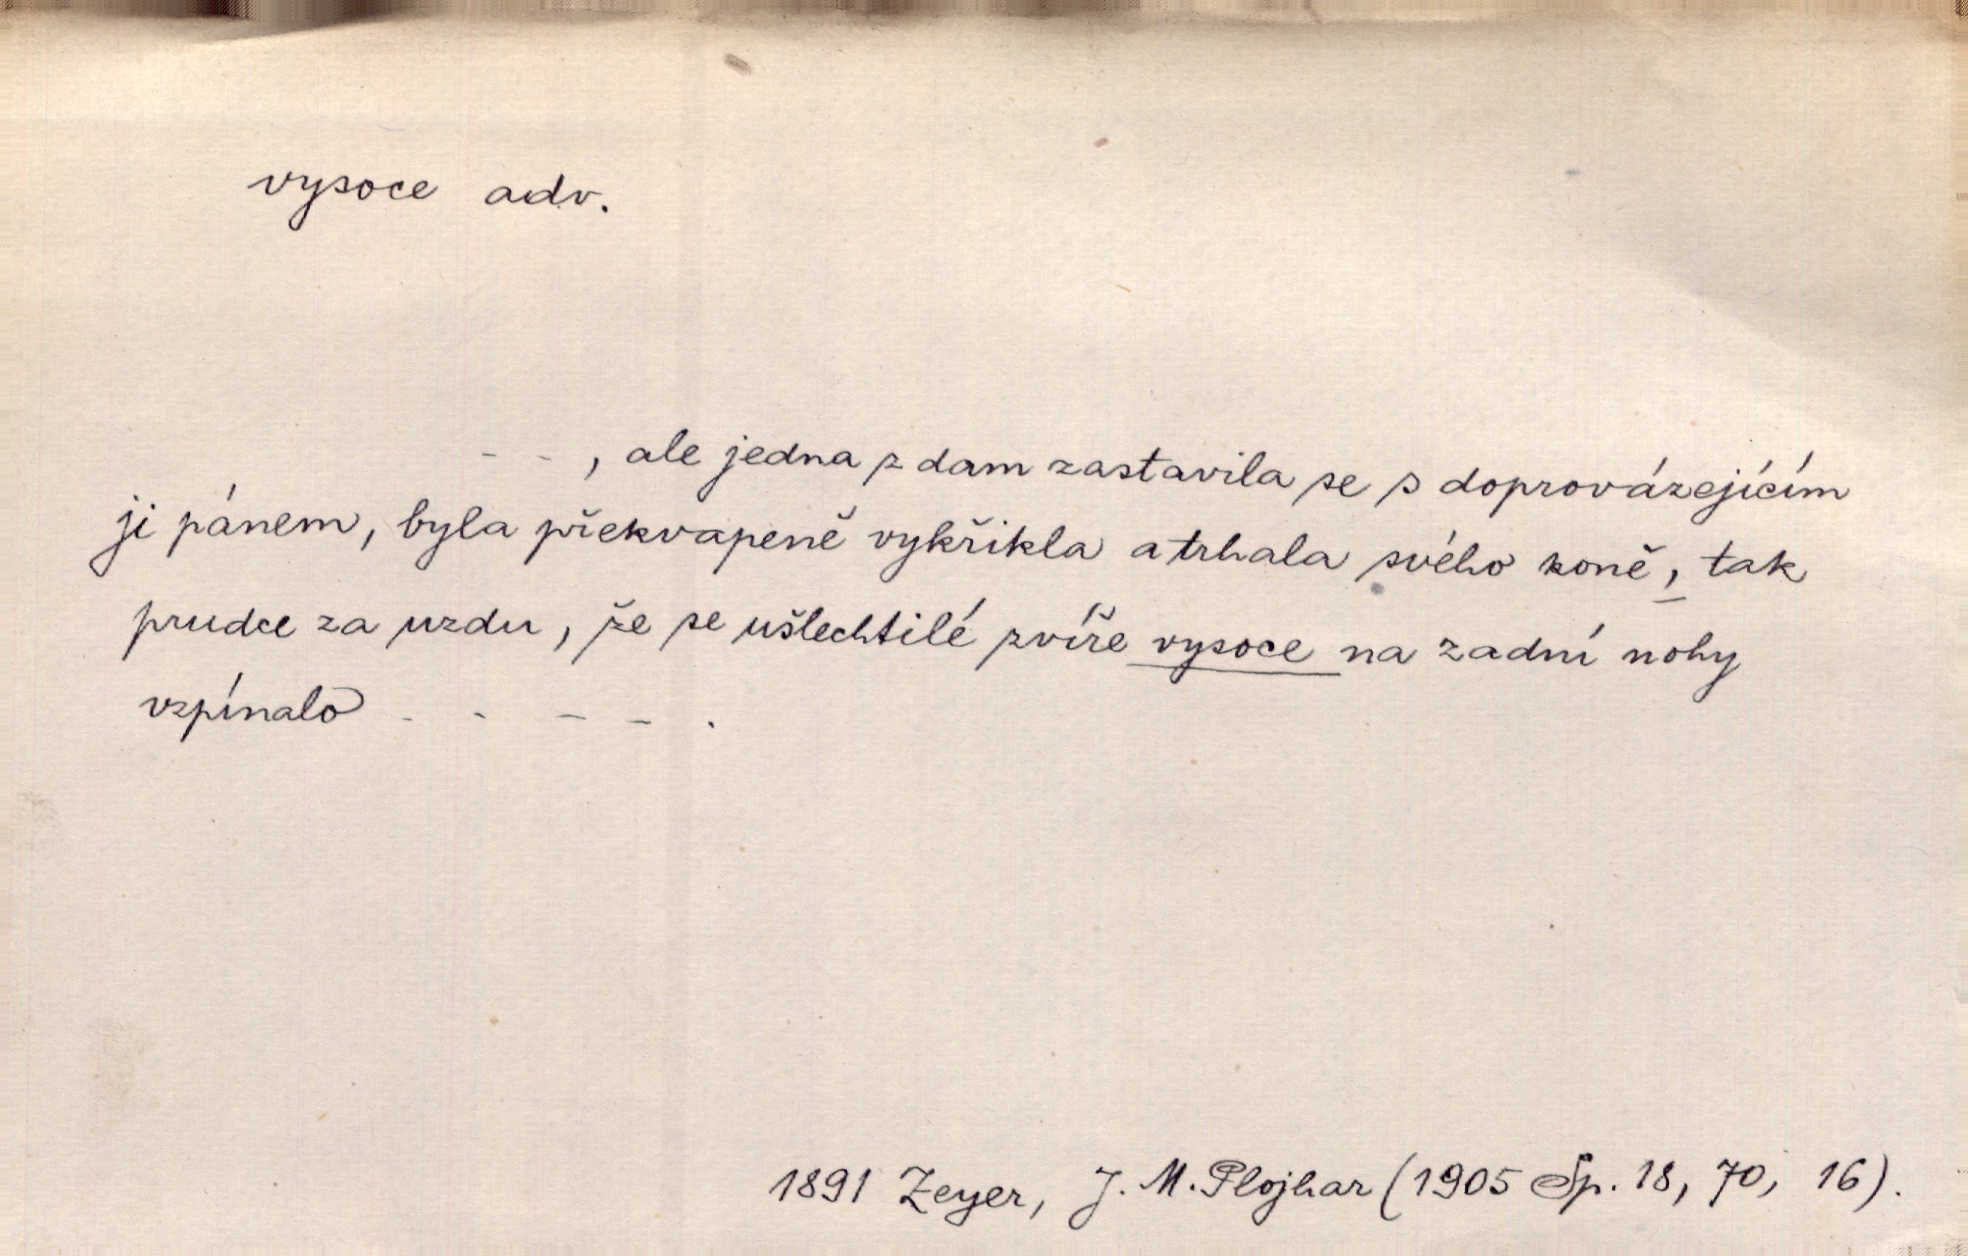 vysoce adv.
- - , ale jedna z dam zastavila se s doprovázejícím
ji pánem, byla překvapeně vykřikla a trhala svého koně, tak
prudce za uzdu, že se ušlechtilé zvíře vysoce na zadní nohy
vzpínalo - - - - .
1891 Zeyer, J. M. Plojhar (1905 Sp. 18, 70, 16).